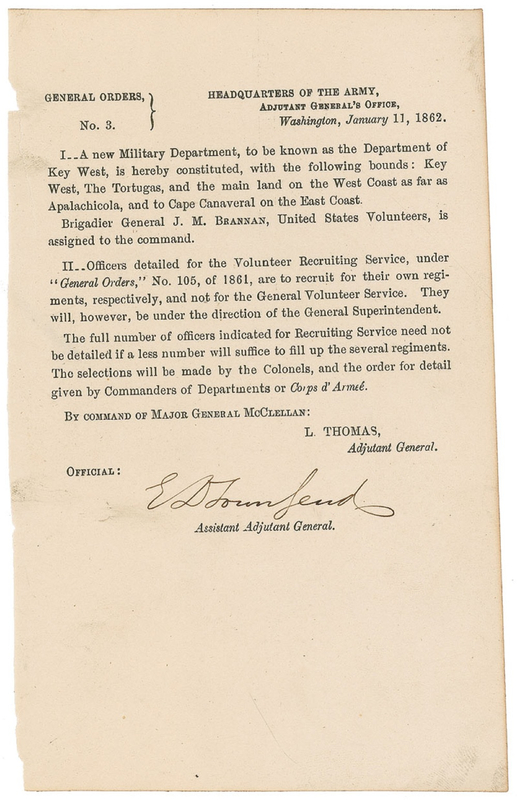 GENERAL ORDERS,
No. 3.
HEADQUARTERS OF THE ARMY,
ADJUTANT GENERAL'S OFFICE,
Washington, January 11, 1862.
I__A new Military Department, to be known as the Department of
Key West, is hereby constituted, with the following bounds: Key
West, The Tortugas, and the main land on the West Coast as far as
Apalachicola, and to Cape Canaveral on the East Coast.
Brigadier General J. M. BRANNAN, United States Volunteers, is
assigned to the command.
II__Officers detailed for the Volunteer Recruiting Service, under
"General Orders," No. 105, of 1861, are to recruit for their own regi-
ments, respectively, and not for the General Volunteer Service. They
will, however, be under the direction of the General Superintendent.
The full number of officers indicated for Recruiting Service need not
be detailed if a less number will suffice to fill up the several regiments.
The selections will be made by the Colonels, and the order for detail
given by Commanders of Departments or Corps d'Armeé.
BY COMMAND OF MAJOR GENERAL MCCLELLAN:
L. THOMAS,
Adjutant General.
OFFICIAL:
E D Townsend
Assistant Adjutant General.